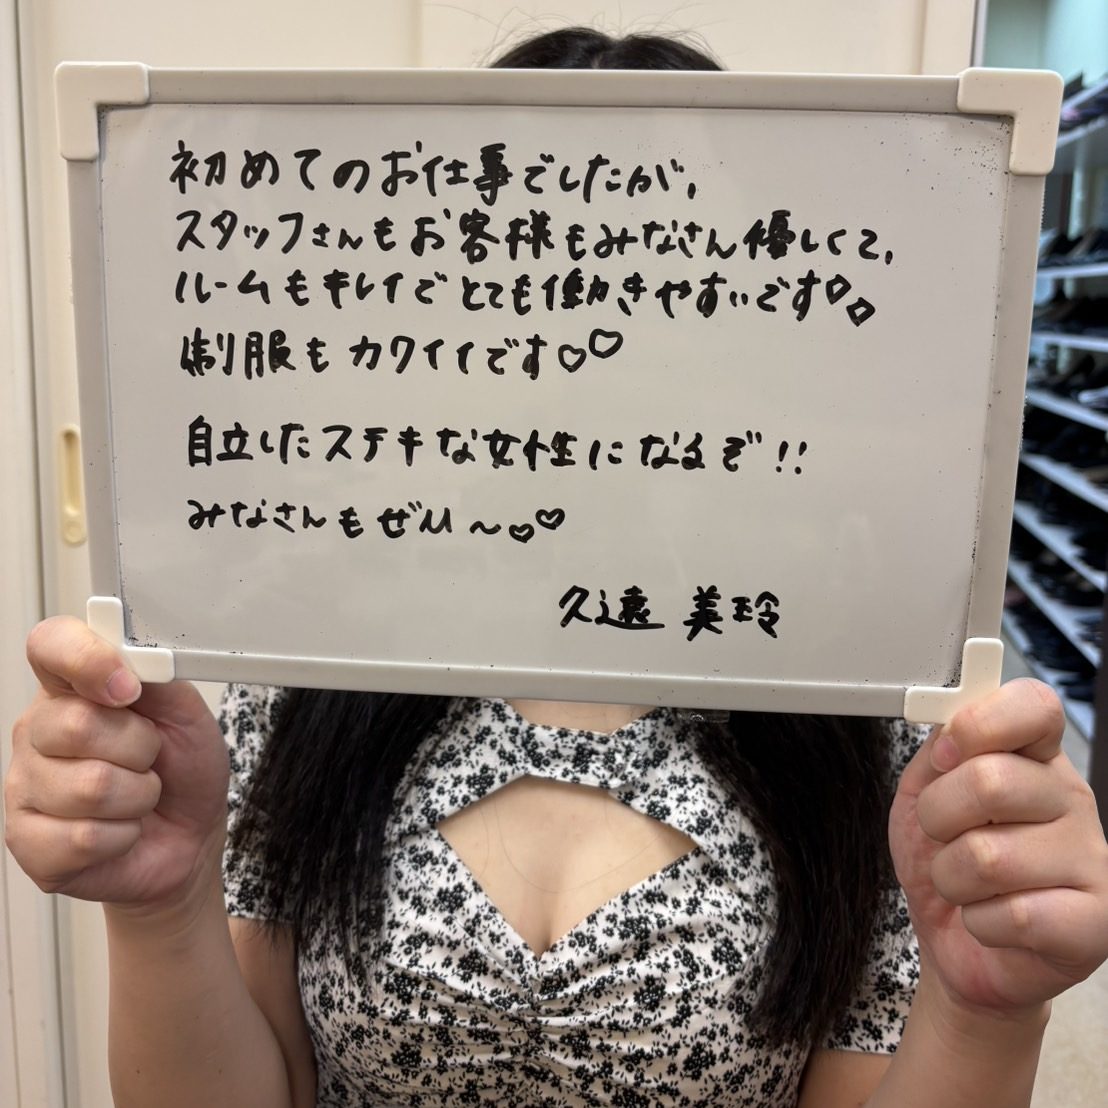 初めてのお仕事でしたが、
スタッフさんもお客様もみなさん優しくて、
ルームもキレイでとても働きやすいです♡♡
制服もカワイイです♡♡
自立したステキな女性になるぞ!!
みなさんもぜひ〜♡♡
久遠 美玲